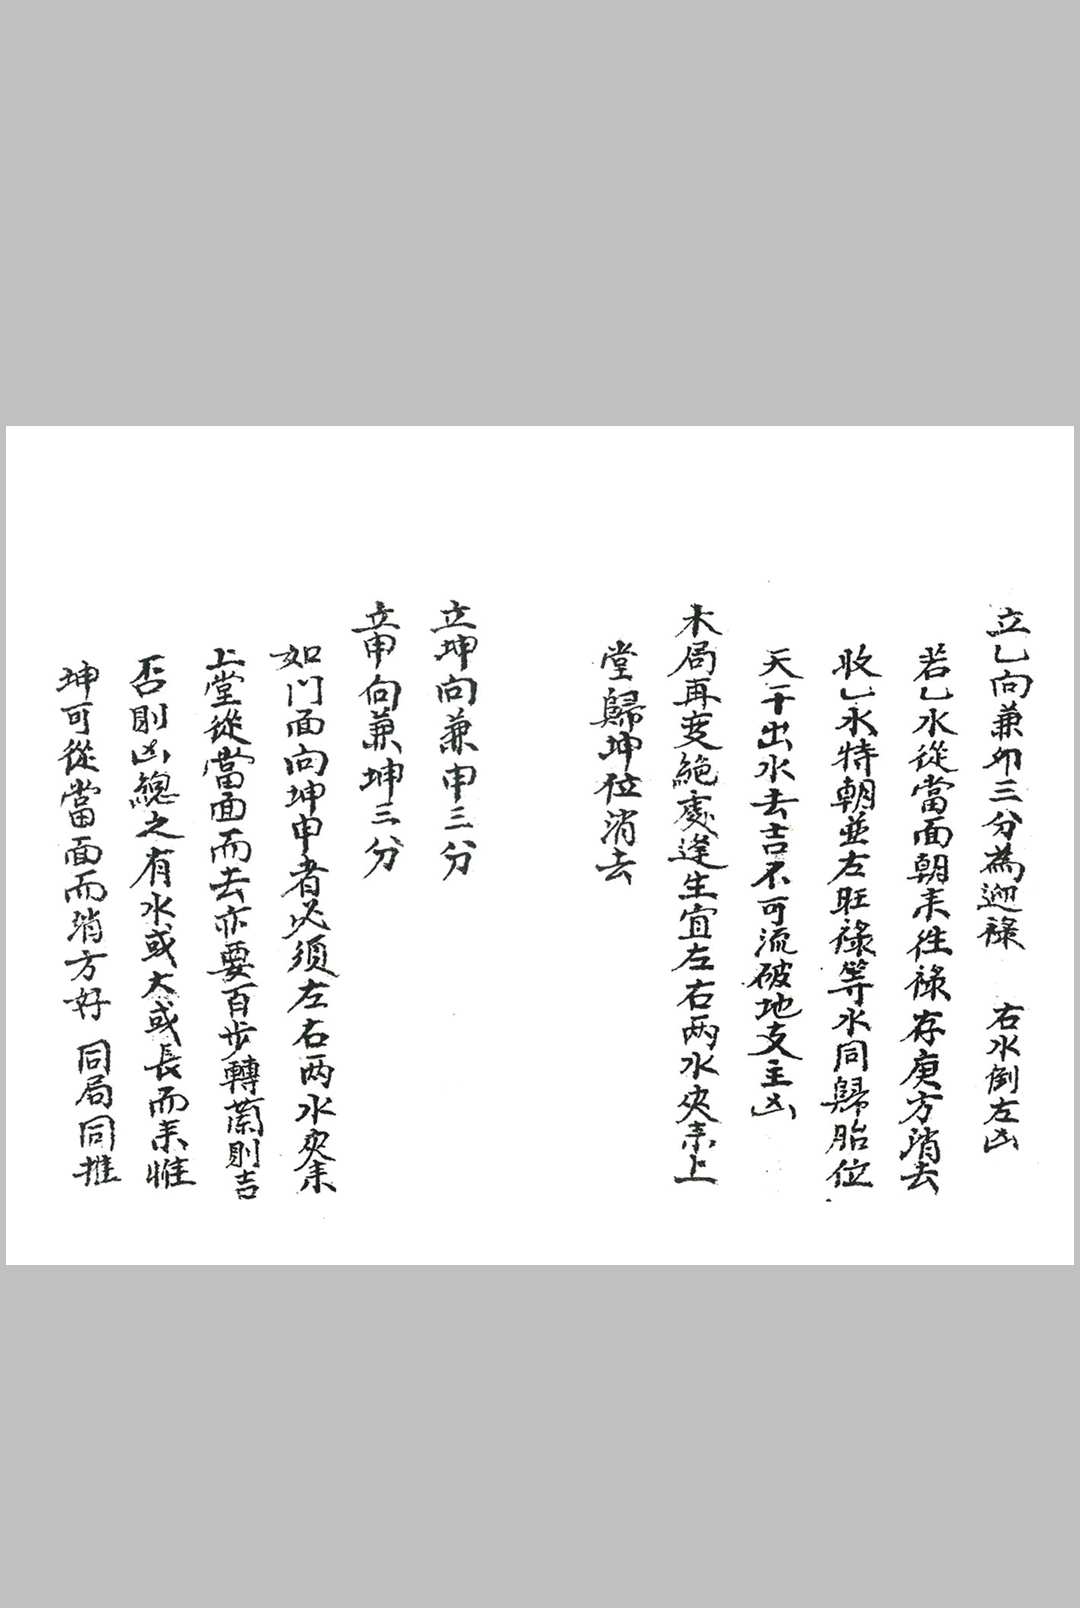 立乙向兼卯三分為迎祿　右水倒左凶
若乙水從當面朝来徃祿存庚方消去
收乙水特朝並左旺祿等水同歸胎位
天干出水去吉不可流破地支主凶
木局再变絶處逢生宜左右两水夾来上
堂歸坤位消去
立坤向兼申三分
立申向兼坤三分
如门面向坤申者必須左右两水夾来
上堂從當面而去亦要百步轉蘭則吉
否則凶總之有水或大或長而来惟
坤可從當面而消方好　同局同推